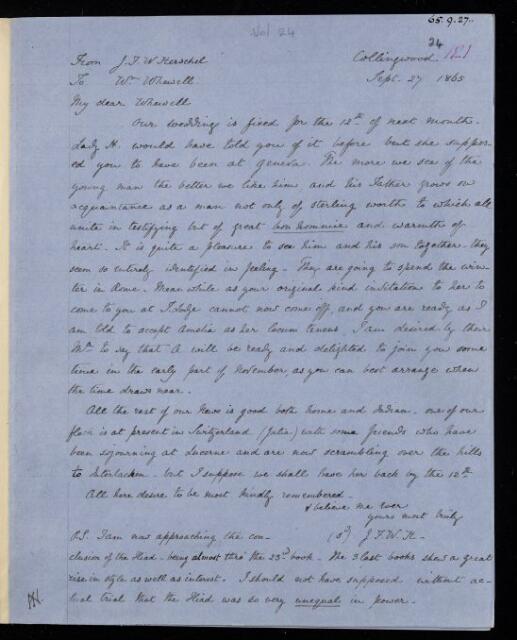 65.9.27.
Vol 24
24
181
From J.F.W. Herschel
Collingwood.
To Wm Whewell
Sept. 27 1865
My dear Whewell
Our wedding is fixed for the 12th of next month.
Lady H. would have told you of it before but she suppos-
ed you to have been at Geneva. The more we see of the
young man the better we like him and his Father grows on
acquaintance as a man not only of sterling worth to which all
unite in testifying but of great bon hommie and warmth of
heart. It is quite a pleasure to see him and his son together - they
seem so entirely identified in feeling - They are going to spend the win-
ter in Rome. Mean while as your original kind invitation to her to
come to you at T. Lodge cannot now come off, and you are ready as I
am told to accept Amelia as her locum tenens, I am desired by their
Mr to say that A will be ready and delighted to join you some
time in the early part of November, as you can best arrange when
the time draws near.
All the rest of our News is good both home and Indian. one of our
flock is at present in Switzerland (Julia) with some friends who have
been sojourning at Lucerne and are now scrambling over the hills
to Interlacken. but I suppose we shall have her back by the 12th
All here desire to be most kindly remembered -
& believe me ever
yours most truly
(sd) J.F.W.H -
P.S. I am now approaching the con-
clusion of the Iliad - being almost thro' the 23d book - The 3 last books shew a great
rise in style as well as interest. I should not have supposed without ac-
tual trial that the Iliad was so very unequal in power.